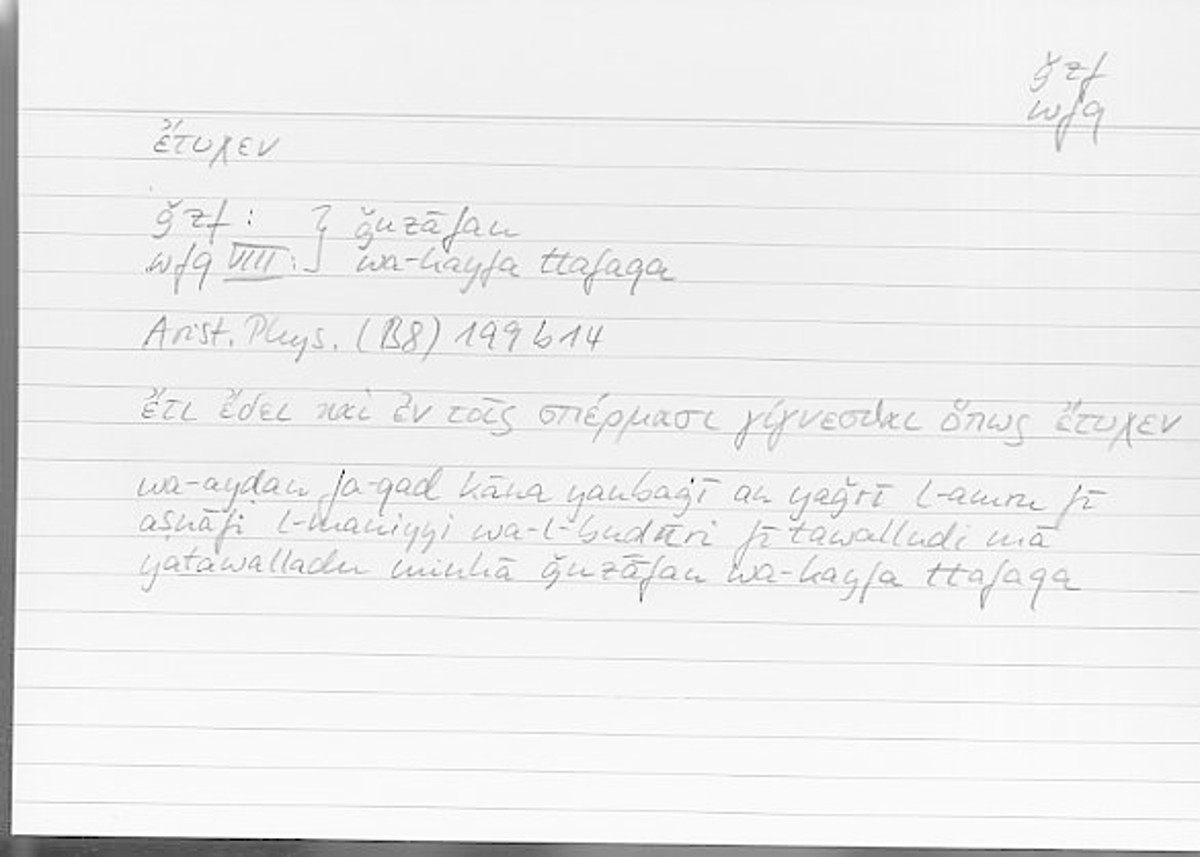 ǧzf
wfq
ἔτυχεν
ǧzf : } ǧuzāfan
wfq VIII : } wa-kayfa ttafaqa
Arist. Phys. (B8) 199 b 14
ἔτι ἔδει καὶ ἐν τοῖς σπέρμασι γίγνεσθαι ὅπως ἔτυχεν
wa-ayḍan fa-qad kāna yanbaġī an yaǧrī l-amru fī
aṣnāfi l-maniyyi wa-l-buḏūri fī tawalludi mā
yatawalladu minhā ǧuzāfan wa-kayfa ttafaqa